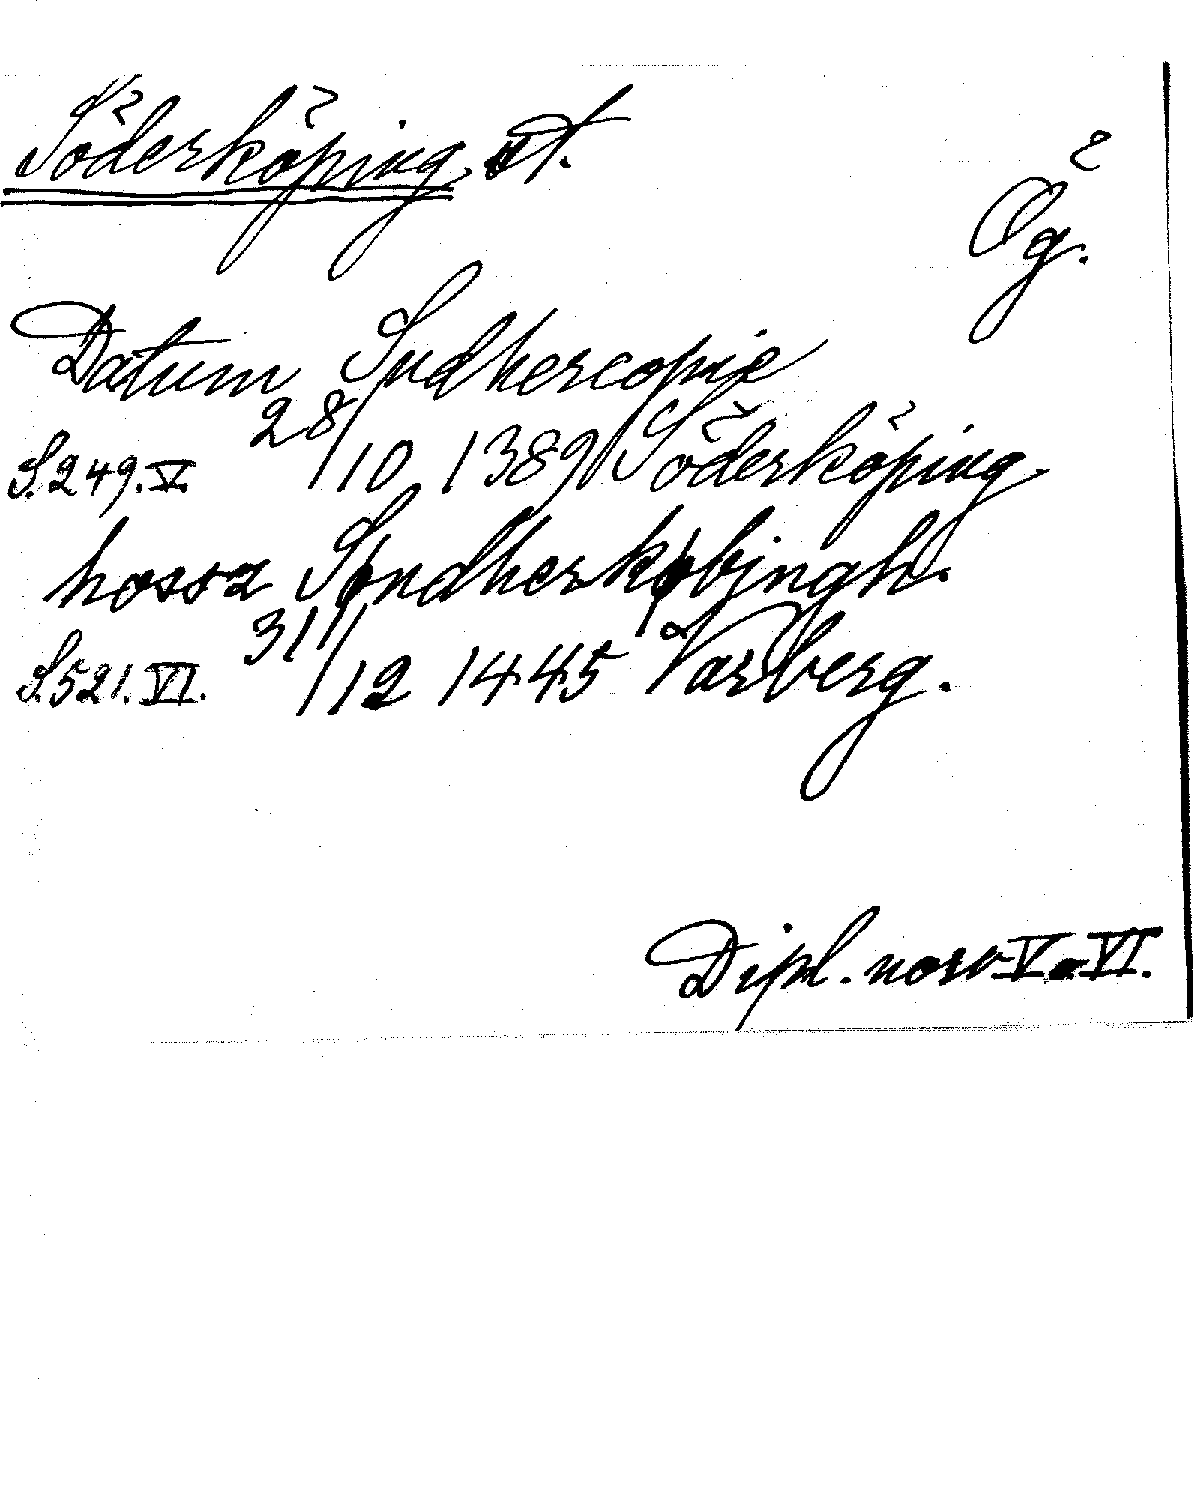 Söderköping st.
Ög.
Datum Sudhercopie
S.249.V. 28/10 1389 Söderköping
hossa Søndherkøbjngh.
S.521.VI. 31/12 1445 Varberg.
Dipl. norv V o VI.